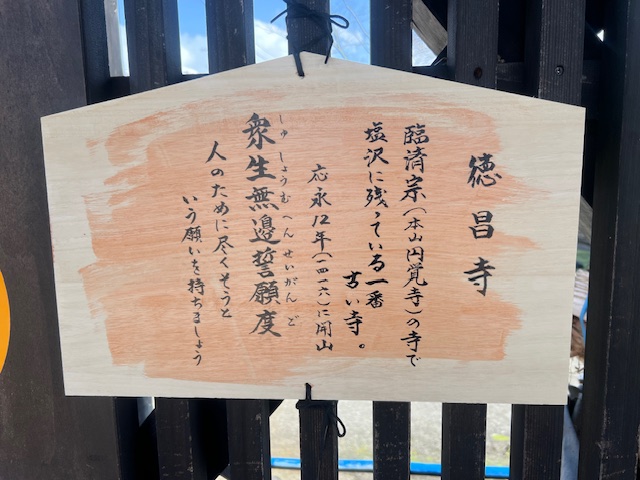 徳昌寺
臨済宗(本山円覚寺)の寺で
塩沢に残っている一番
古い寺。
応永12年(一四一六)に開山
しゅしょうむへんせいがんど
衆生無邊誓願度
人のために尽くそうと
いう願いを持ちましょう